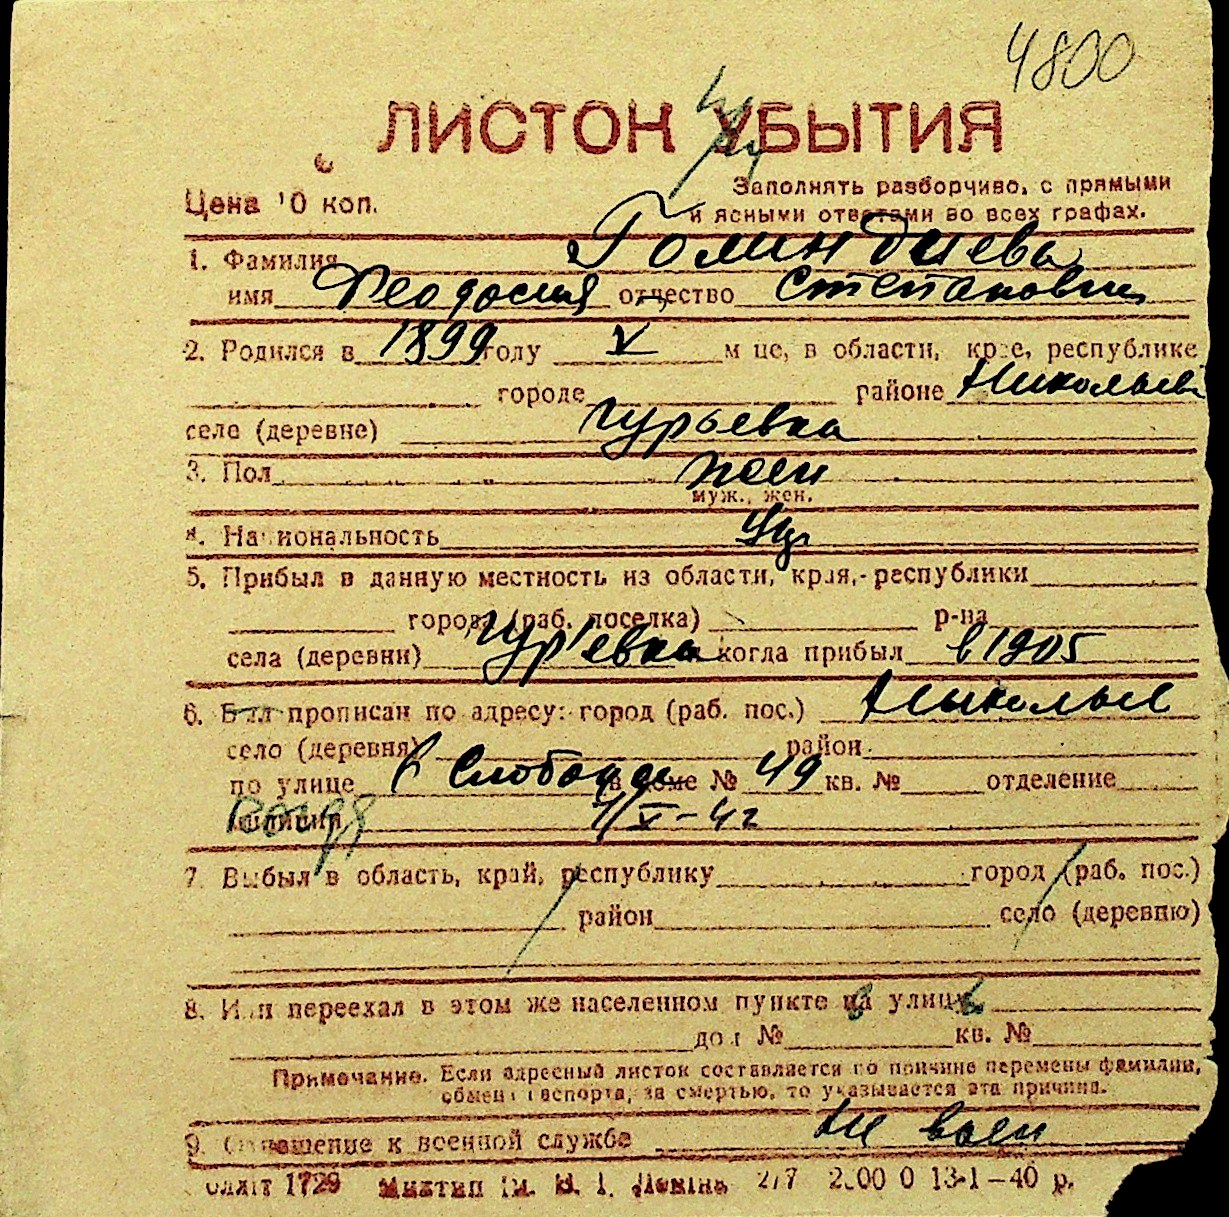 4800
ЛИСТОК УБЫТИЯ
Цена 10 коп.
Заполнять разборчиво, с прямыми
и ясными ответами во всех графах.
1. Фамилия
имя Феодосия отчество Степановна
2. Родился в 1899 году V м-це, в области, крае, республике
городе районе Николаев
село (деревне) Гурьевка
3. Пол жен
муж., жен.
4. Национальность Укр
5. Прибыл в данную местность из области, края, республики
города (раб. поселка) р-на
села (деревни) Гур'евка когда прибыл в 1905
6. Был прописан по адресу: город (раб. пос.) Николаев
село (деревня) район
по улице 6 Слободн в доме № 49 кв. № отделение
милиции 7/V-42
7. Выбыл в область, край, республику город (раб. пос.)
район село (деревню)
8. Или переехал в этом же населенном пункте на улицу
дом № кв. №
Примечание. Если адресный листок составляется по причине перемены фамилии,
обмена паспорта, за смертью, то указывается эта причина.
9. Отношение к военной службе не воен
Облліт 1729 2/7 2.00 0 13-1-40 р.